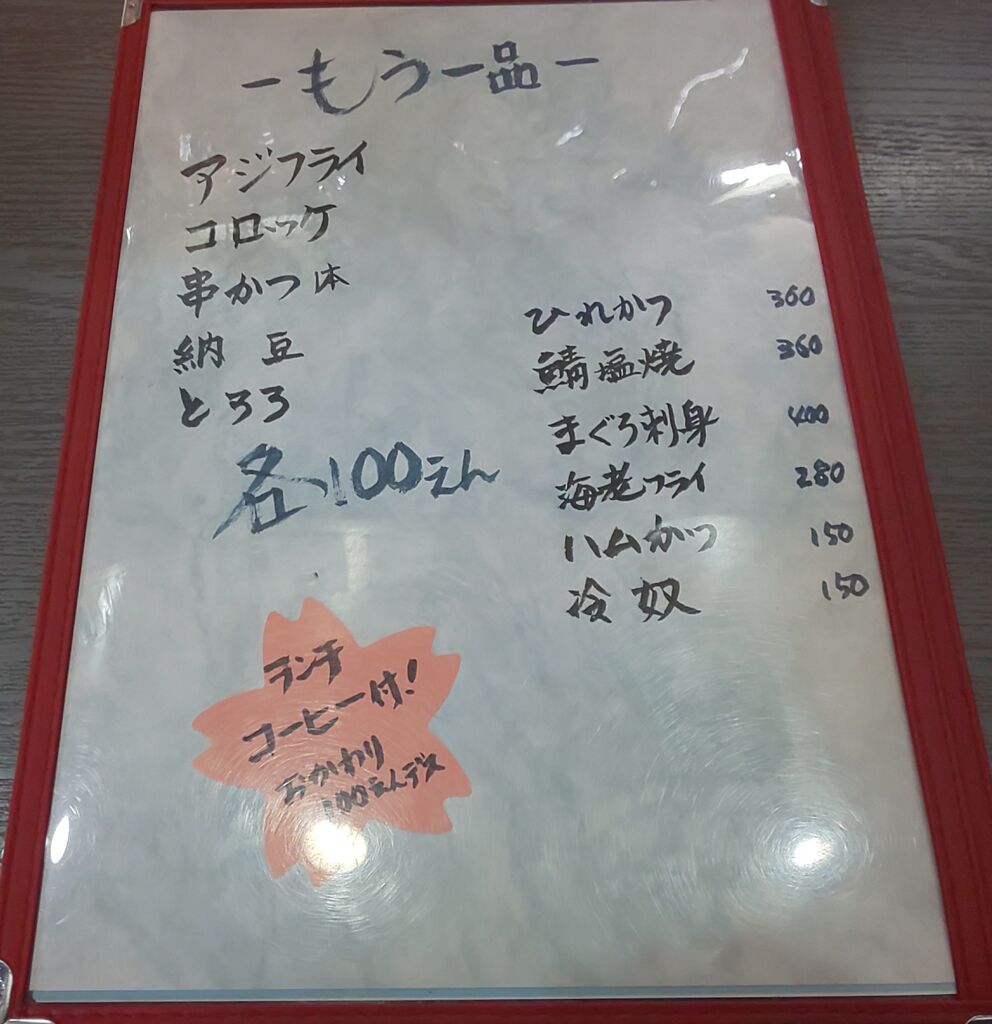 －もう一品－
アジフライ
コロッケ
串かつ1本
納豆
とろろ
各100えん
ひれかつ 360
鯖塩焼 360
まぐろ刺身 400
海老フライ 280
ハムかつ 150
冷奴 150
ランチ
コーヒー付!
おかわり
100えんデス